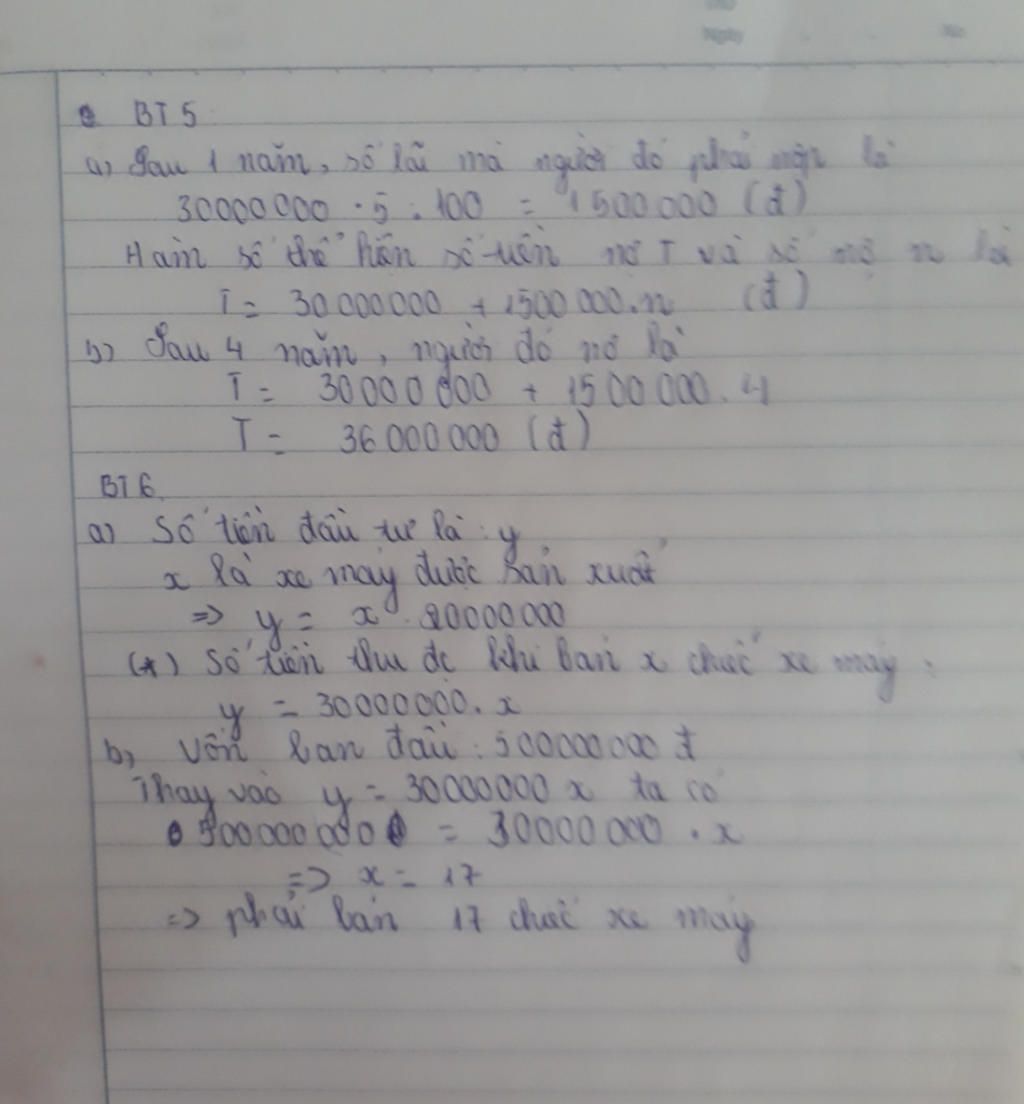 Ngày
No
BT 5
a) Sau 1 năm, số lãi mà người đó phải nộp là
30000000 . 5 : 100 = 1500000 (đ)
Hàm số thể hiện số tiền nợ T và số n là
T = 30000000 + 1500000.n (đ)
b) Sau 4 năm, người đó nợ là
T = 30000000 + 1500000.4
T = 36000000 (đ)
BT 6
a) Số tiền đầu tư là : y
x là xe máy được sản xuất
=> y = x . 20000000
(*) Số tiền thu đc khi bán x chiếc xe máy :
y = 30000000. x
b) Vốn ban đầu : 500000000 đ
Thay vào y = 30000000 x ta có
500000000 = 30000000 . x
=> x = 17
=> phải bán 17 chiếc xe máy